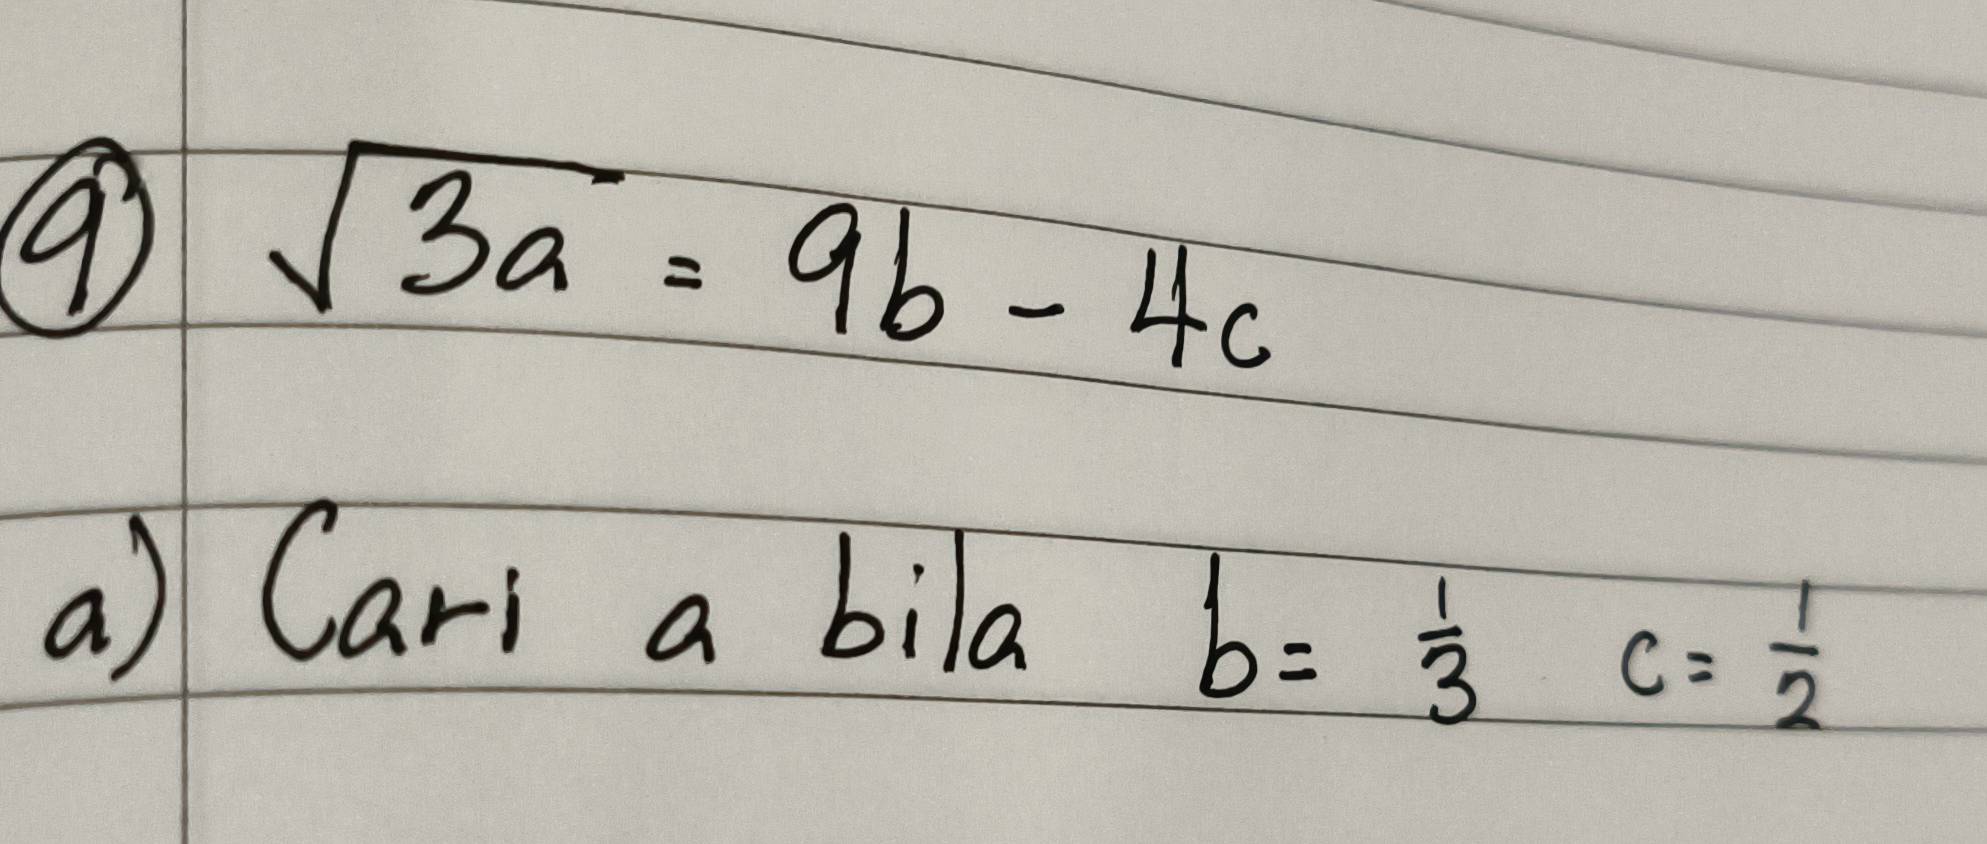 ⑨ √3a = 9b - 4c
a) Cari a bila b = 1/3 c = 1/2